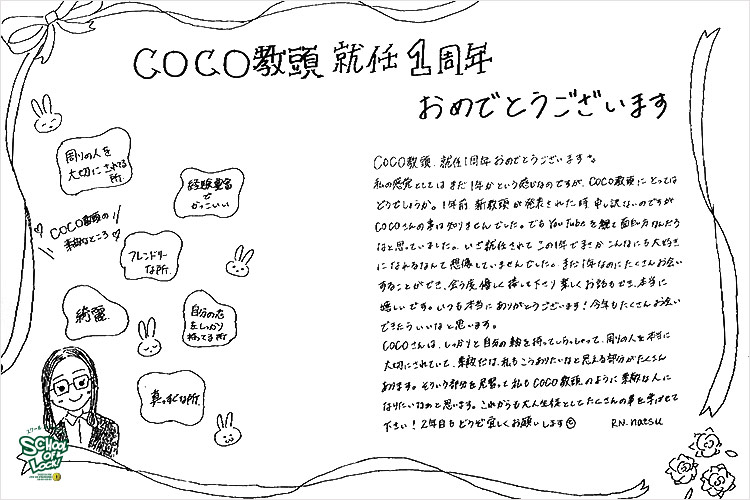 COCO教頭 就任1周年
おめでとうございます
周りの人を
大切にされてる
所.
経験豊富
で
かっこいい
COCO教頭の
素敵なところ♡
フレンドリー
な所.
綺麗.
自分の芯
をしっかり
持ってる所
真っすぐな所.
COCO教頭、就任1周年おめでとうございます。
私の感覚としてはまだ1年かという感じなのですが、COCO教頭にとっては
どうでしょうか。1年前 新教頭が発表された時 申し訳ないのですが
COCOさんの事は知りませんでした。でもYouTubeを観て面白い方なんだろう
なと思っていました。いざ就任されてこの1年でまさかこんなにも大好き
になれるなんて想像していませんでした。まだ1年なのにたくさんお会い
することができ、会う度 優しく接して下さり 楽しくお話もでき、本当に
嬉しいです。いつも本当にありがとうございます！今年もたくさんお会い
できたらいいなと思います。
COCOさんは、しっかりと自分の軸を持っていらっしゃって、周りの人を本当に
大切にされていて、素敵だな、私もこうありたいなと思える部分がたくさん
あります。そういう部分を見習って私もCOCO教頭のように素敵な人に
なりたいなと思います。これからも大人生徒としてたくさんの事を学ばせて
下さい！2年目もどうぞ宜しくお願いします
R.N. natsu
SCHOOL
OF
LOCK!